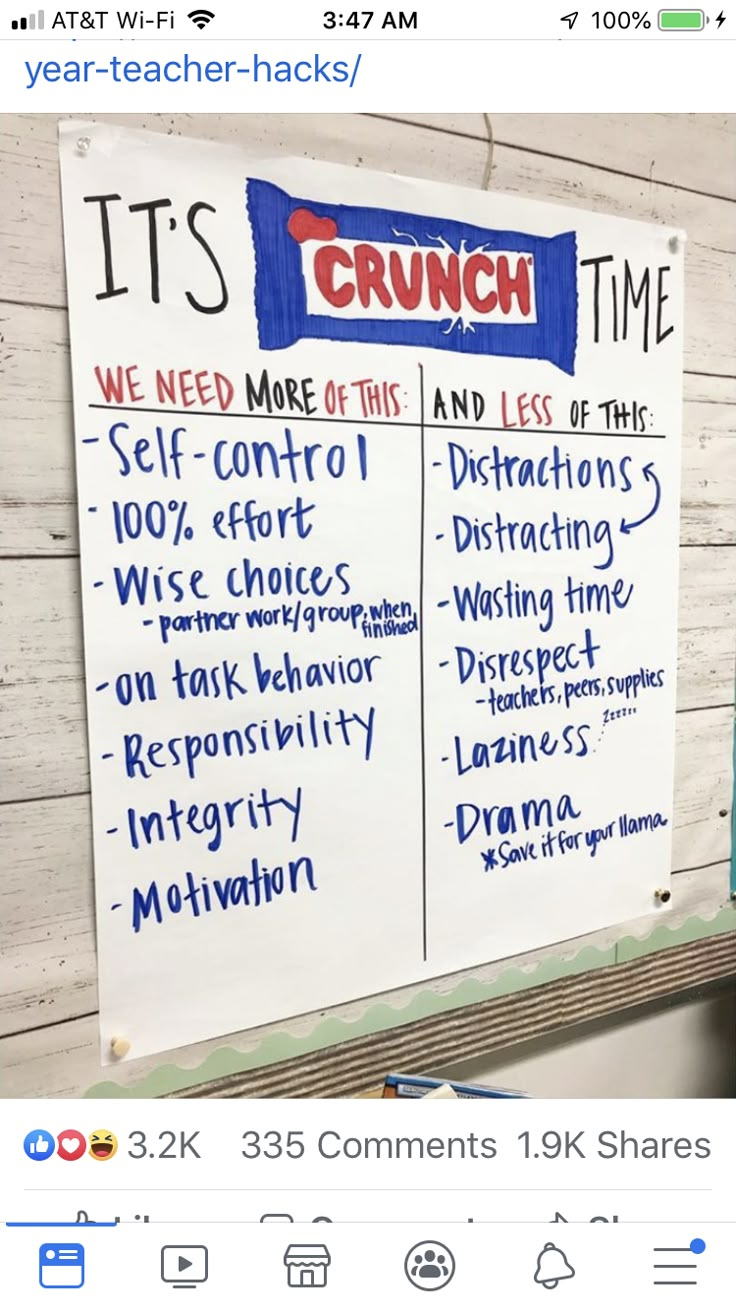 AT&T Wi-Fi 3:47 AM 100%
year-teacher-hacks/
IT'S CRUNCH TIME
WE NEED MORE OF THIS:
- Self-control
- 100% effort
- Wise choices
- partner work/group, when finished
- on task behavior
- Responsibility
- Integrity
- Motivation
AND LESS OF THIS:
- Distractions
- Distracting
- Wasting time
- Disrespect
- teachers, peers, supplies
- Laziness zzzzzz
- Drama
*Save it for your llama
3.2K 335 Comments 1.9K Shares